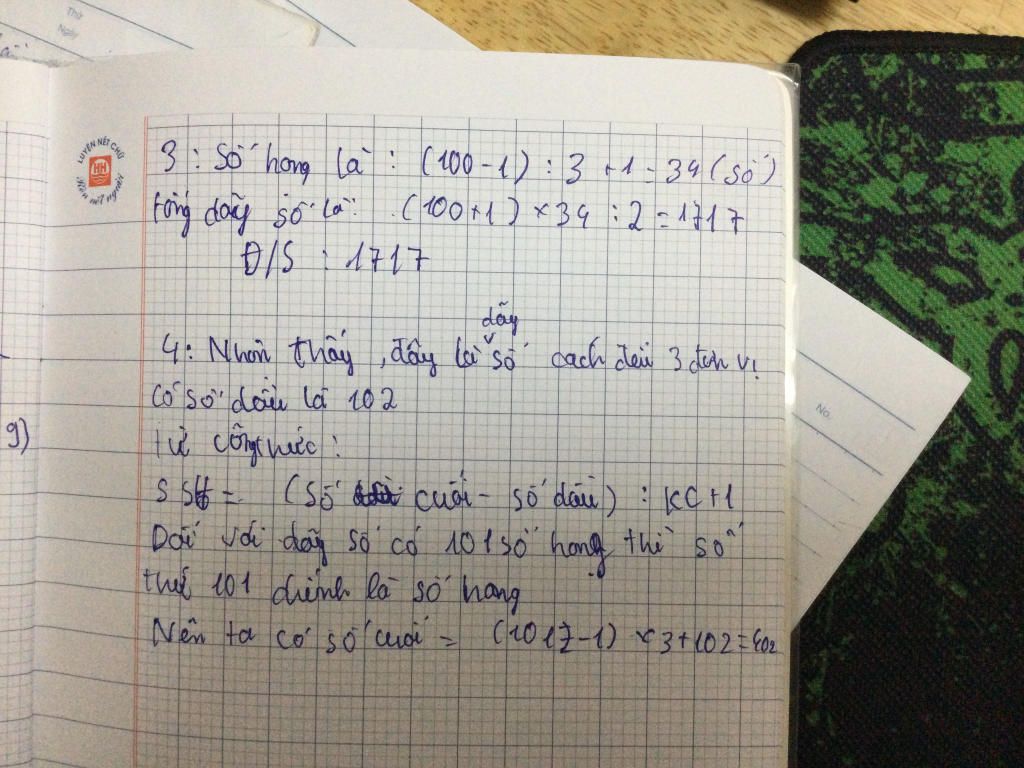 Thứ
Ngày
LUYỆN NÉT CHỮ
HH
Rèn nết người
3 : Số hạng là : (100 - 1) : 3 + 1 = 34 (số)
tổng dãy số là : (100 + 1) × 34 : 2 = 1717
Đ/S : 1717
dãy
4 : Nhận thấy , đây là số cách đều 3 đơn vị
có số đầu là 102
từ công thức :
SSH = (số cuối - số đầu) : KC + 1
Đối với dãy số có 101 số hạng thì số
thứ 101 chính là số hạng
Nên ta có số cuối = (101 - 1) × 3 + 102 = 402
9)
No.